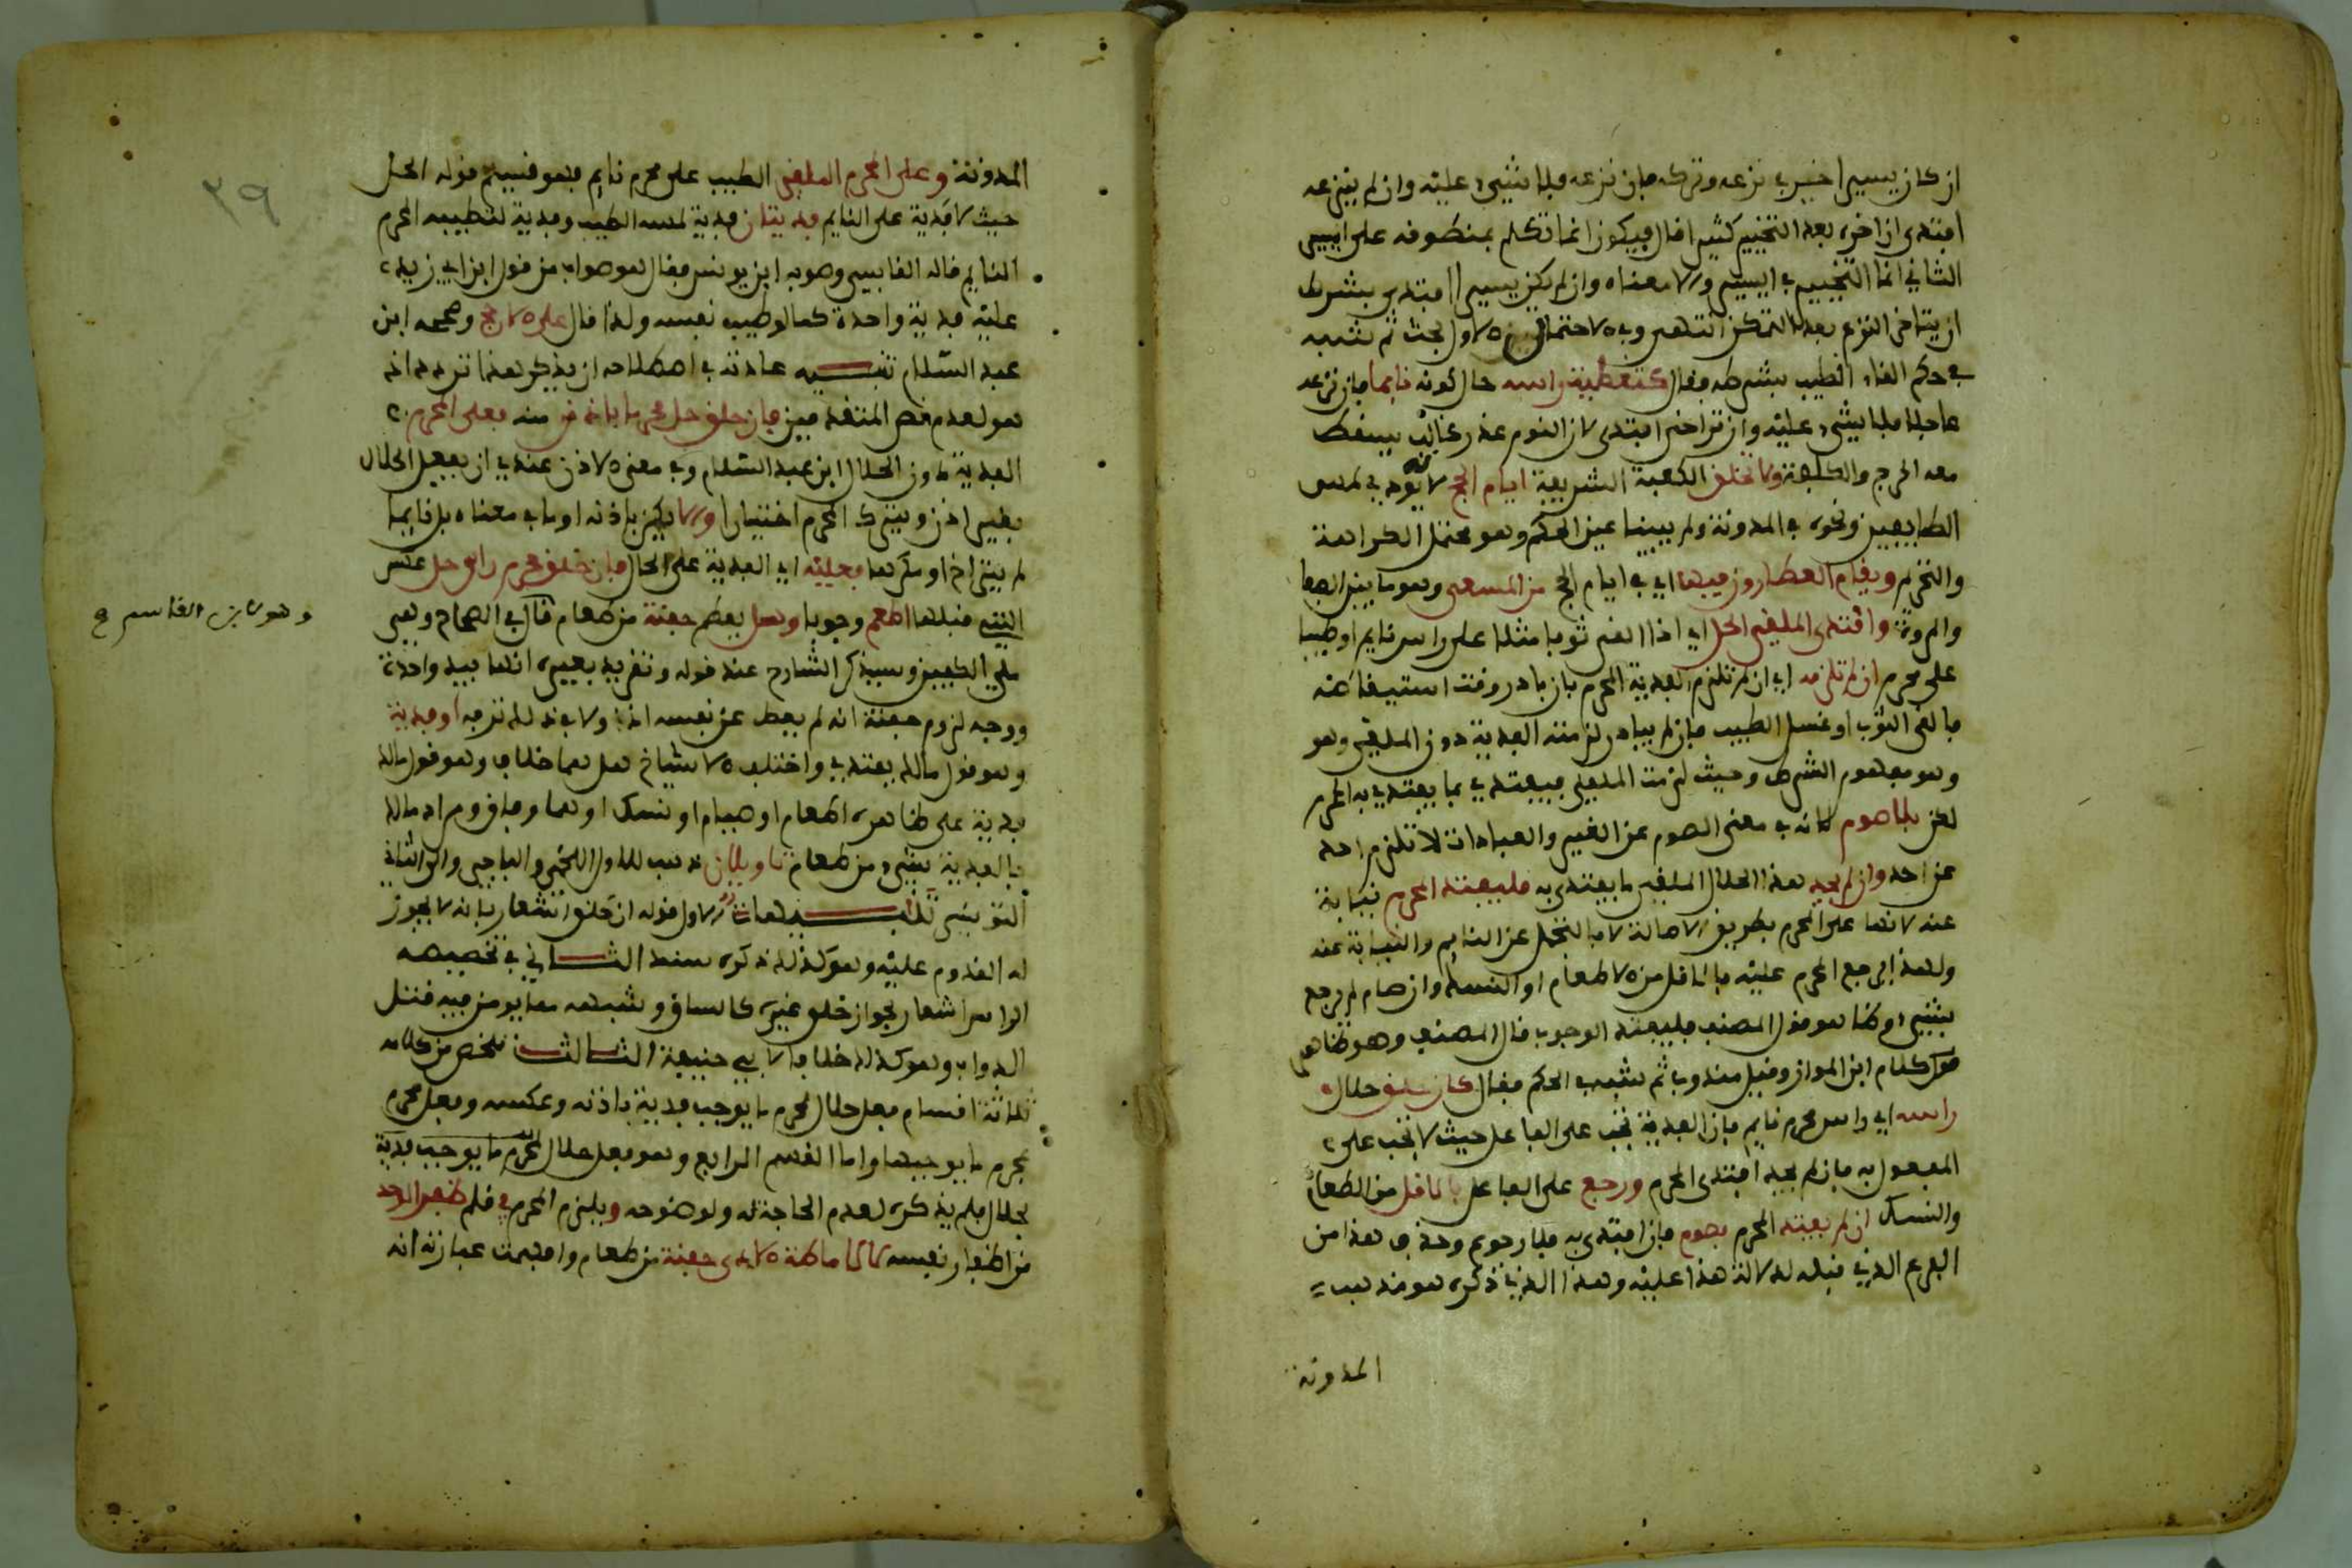 ان كان يسيرا خير في نزعه وتركه فان نزعه فلا شيء عليه وان لم ينزعه
افتدى ان تراخى بعد التخيير كثيرا قال فيكون انما تكلم بمنطوقه على اليسير
الثاني انما التخيير في اليسير والا معناه وان لم يكن يسيرا افتدى بشرط
ان يتاخر النزع بعد التمكن انتهى وفي الاحتمال الاول بحث ثم شبه
في حكم القاء الطيب بشرطه فقال كتغطية راسه حال كونه نايما فان نزعه
عاجلا فلا شيء عليه وان تراخى افتدى لان النوم عذر غالب يسقط
معه الحرج والكلفة ولا تخلق الكعبة الشريفة ايام الحج لانه يودي لمس
الطايفين ونحوه في المدونة ولم يبينا عين الحكم وهو محتمل الكراهة
والتحريم ويقام العطارون فيها اي في ايام الحج من المسعى وهو ما بين الصفا
والمروة وافتدى الملقي الحل اي اذا القى ثوبا مثلا على راس نايم او طيبا
على محرم ان لم تلزمه اي ان لم تلزم الفدية المحرم بان بادر وقت استيقاظه
فالقى الثوب او غسل الطيب فان لم يبادر لزمته الفدية دون الملقي وهو
وهو مفهوم الشرط وحيث لزمت الملقي فيفتدي بما يفتدي به المحرم
لكن بلا صوم لانه في معنى الصوم عن الغير والعبادات لا تلزم احد
عن احد وان لم يجد هذا الحلال الملقي ما يفتدى به فليفتد المحرم نيابة
عنه لانها على المحرم بطريق الاصالة لا بالتحمل عن النايم والنيابة عنه
ولهذا يرجع المحرم عليه بالاقل من الاطعام او النسك وان صام لم يرجع
بشيء وظاهر قول المصنف فليفتد الوجوب قال المصنف وهو ظاهر
كلام ابن المواز وقيل مندوبا ثم شبه في الحكم فقال كان حلق حلال
راسه اي راس محرم نايم فان الفدية تجب على الفاعل حيث لا تجب على
المفعول به فان لم يجد افتدى المحرم ورجع على الفاعل بالاقل من الطعام
والنسك ان لم يفتد المحرم بصوم فان افتدى به فلا رجوع وحذف هذا من
الفرع الذي قبله لدلالة هذا عليه وهذا الذي ذكره هو مذهب
المدونة
٣٩
المدونة وعلى المحرم الملقي الطيب على محرم نايم فهو قسيم قوله الحل
حيث لا فدية على النايم فديتان فدية لمسه الطيب وفدية لتطييبه المحرم
النايم قاله القابسي وصوبه ابن يونس فقال هو صواب من قول ابن ابي زيد
عليه فدية واحدة كما لو طيب نفسه ولذا قال على الارجح وصححه ابن
عبد السلام تنبيه عادته في اصطلاحه ان يذكر هنا تردد انه
هو لعدم نص المتقدمين فان حلق حل محرما باذنه منه فعلى المحرم
الفدية دون الحلال ابن عبد السلام وفي معنى الاذن عندي ان يفعل الحلال
بغير اذن ويترك المحرم اختيارا والا يكن باذنه او ما في معناه بل نايما
لم يتراخ او مكرها فعليه اي الفدية على الحال فان حلق محرم راس حل عكس
التي قبلها اطعم وجوبا وهل يعطم حفنة من طعام قال في الصحاح وهي
ملء الكفين وسيذكر الشارح عند قوله وتقريد بعيره انها بيد واحدة
ووجه لزوم حفنة انه لم يعط عن نفسه اذى ولا في ذلك ترفه او فدية
وهو قول مالك يفتدي واختلف الاشياخ هل هما خلاف وهو قول مالك
فدية على ظاهره اطعام او صيام او نسك او هما وفاق ومراد مالك
بالفدية شيء من طعام تاويلان ذهب للاول اللخمي والباجي والى الثاني
التونسي تنبيهات الاول قوله ان حلق اشعار بانه لا يجوز
له القدوم عليه وهو كذلك ذكره سند الثاني في تخصيصه
الراس اشعار بجواز حلق غيره كالساق وشبهه مما يومن فيه قتل
الدواب وهو كذلك خلافا لابي حنيفة الثالث تلخص من كلامه
ثلاثة اقسام فعل حلال بمحرم ما يوجب فدية باذنه وعكسه وفعل محرم
بمحرم ما يوجبها واما القسم الرابع وهو فعل حلال بمحرم ما يوجب فدية
بحلال فلم يذكره لعدم الحاجة له ولوضوحه ويلزم المحرم في قلم ظفر الواحد
من اظفار نفسه لا لاماطة الاذى حفنة من طعام وافهمت عبارته انه
وهو لابن القاسم